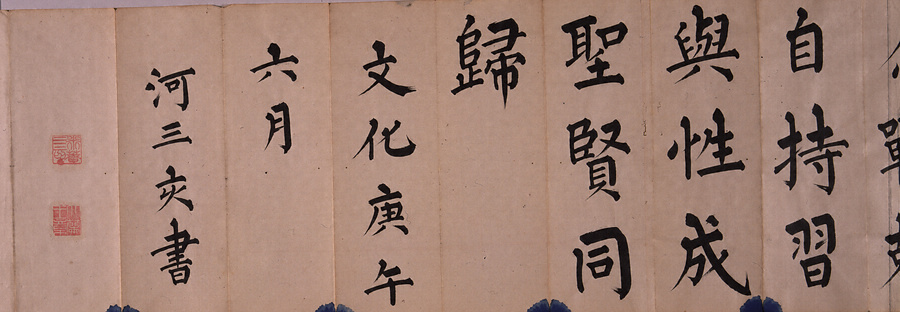 自持習
與性成
聖賢同
歸
文化庚午
六月
河三亥書